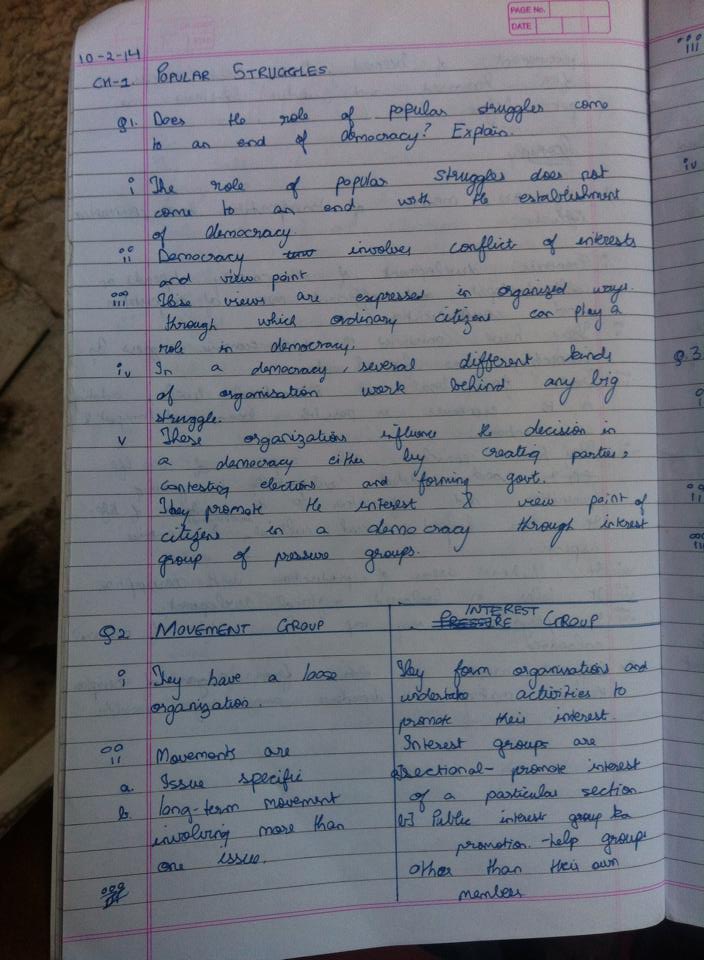 PAGE No.
DATE
10-2-14
CH-1. POPULAR STRUGGLES
Q1. Does the role of popular struggles come
to an end of democracy? Explain.
i The role of popular struggles does not
come to an end with the establishment
of democracy.
ii Democracy involves conflict of interests
and view point
iii These views are expressed in organized ways.
through which ordinary citizens can play a
role in democracy.
iv In a democracy, several different kinds
of organisation work behind any big
struggle.
v These organizations influence the decision in
a democracy either by creating parties,
contesting elections and forming govt.
They promote the interest & view point of
citizens in a democracy through interest
group of pressure groups.
Q2 MOVEMENT GROUP
i They have a loose
organization.
ii Movements are
a. Issue specific
b. long-term movement
involving more than
one issue.
iii
INTEREST
PRESSURE GROUP
They form organisations and
undertake activities to
promote their interest.
Interest groups are
a] sectional- promote interest
of a particular section
b] Public interest group
promotion. -help groups
other than their own
members
iii
iv
Q.3
i
ii
iii